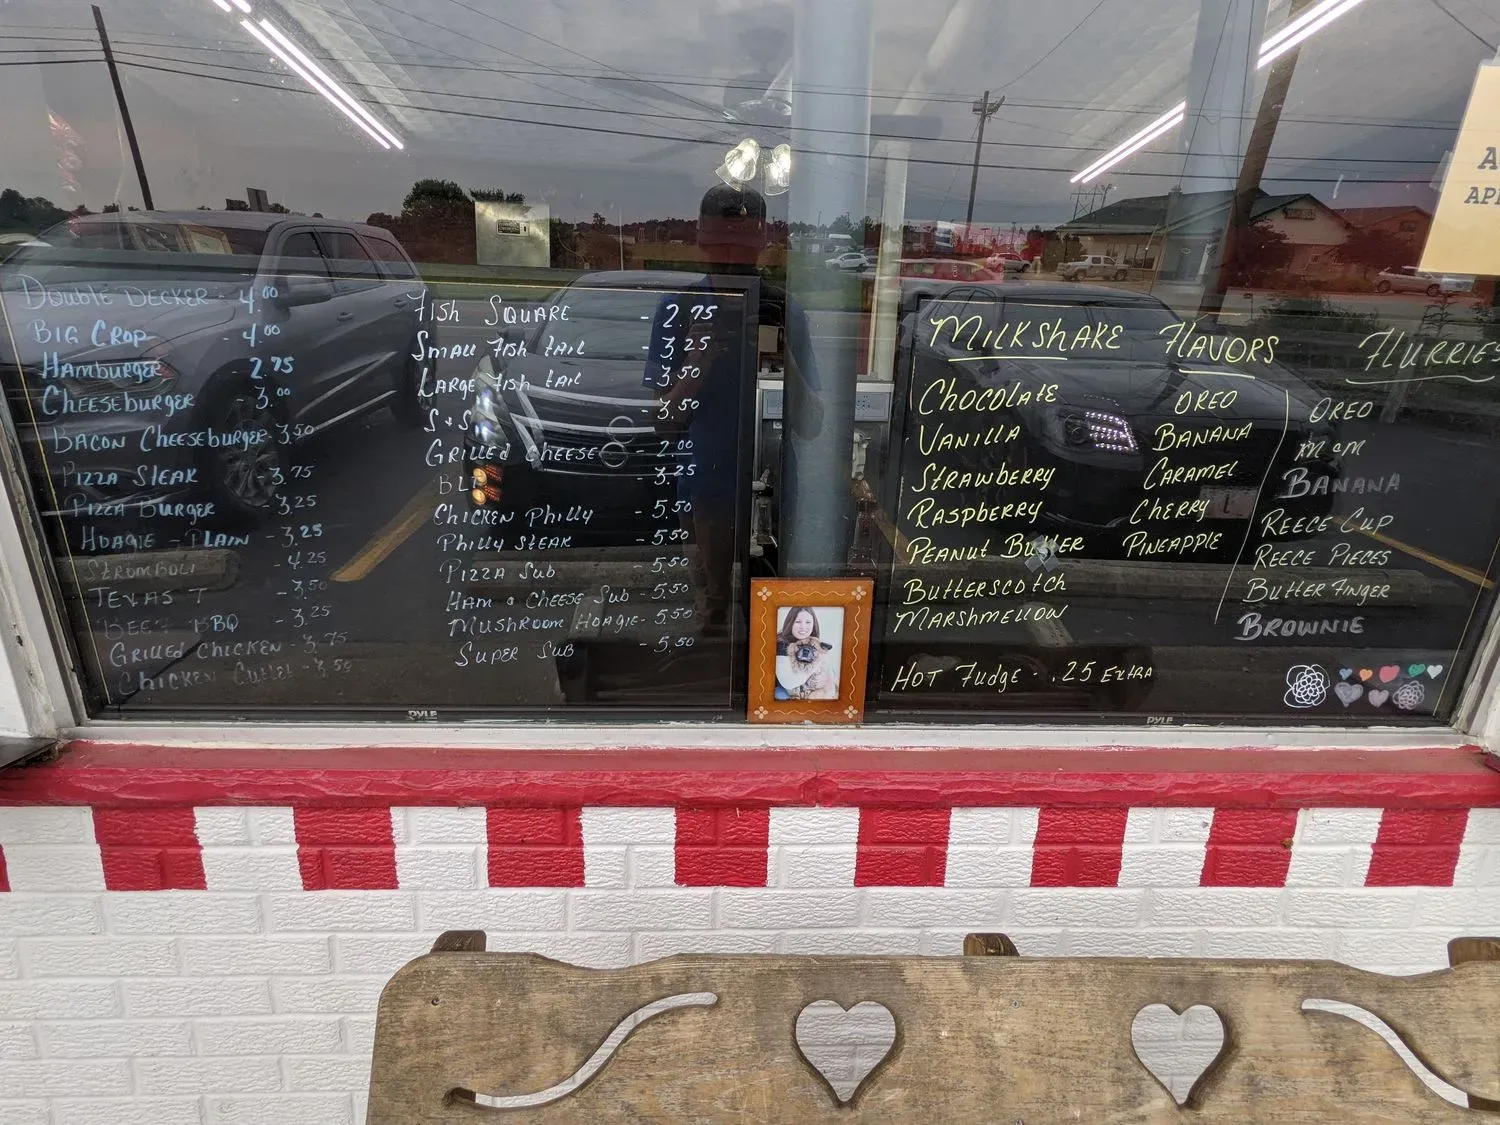 Double Decker - 4.00
Big Crop - 4.00
Hamburger - 2.75
Cheeseburger - 3.00
Bacon Cheeseburger - 3.50
Pizza Steak - 3.75
Pizza Burger - 3.25
Hoagie - Plain - 3.25
Stromboli - 4.25
Texas T - 3.50
BBQ - 3.25
Grilled Chicken - 3.75
Chicken Cutlet - 3.50
Fish Square - 2.75
Small Fish Tail - 3.25
Large Fish Tail - 3.50
- 3.50
Grilled Cheese - 2.00
BLT - 3.25
Chicken Philly - 5.50
Philly Steak - 5.50
Pizza Sub - 5.50
Ham & Cheese Sub - 5.50
Mushroom Hoagie - 5.50
Super Sub - 5.50
PYLE
Milkshake Flavors
Chocolate
Vanilla
Strawberry
Raspberry
Peanut Butter
Butterscotch
Marshmellow
Oreo
Banana
Caramel
Cherry
Pineapple
Hot Fudge - .25 Extra
Flurries
Oreo
M&M
Banana
Reece Cup
Reece Pieces
Butter Finger
Brownie
PYLE